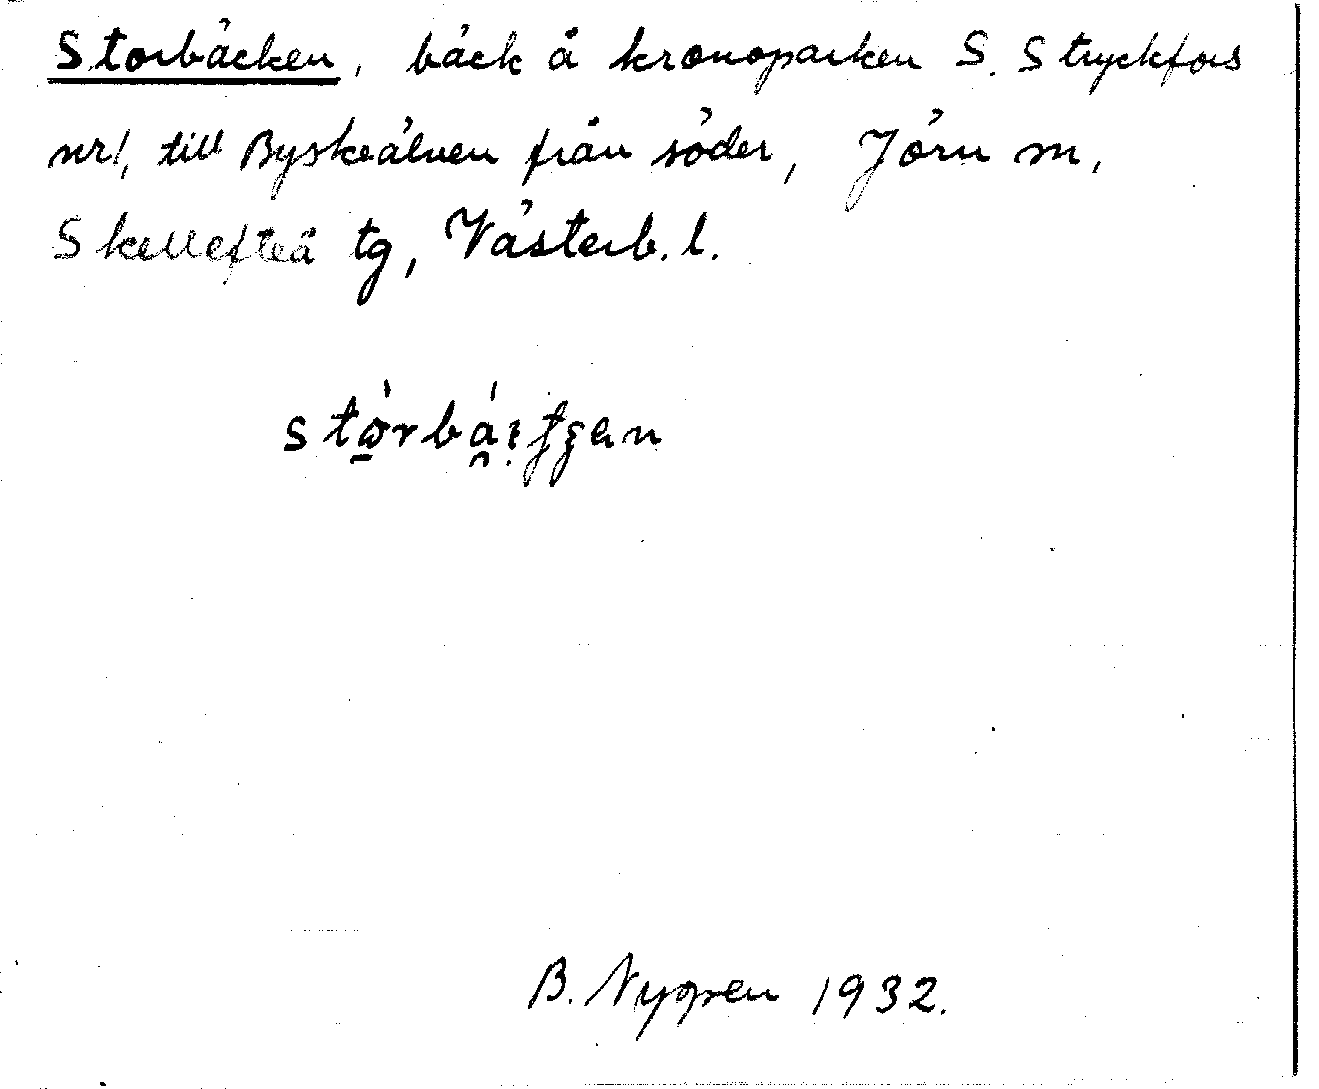 Storbäcken, bäck å kronoparken S. Stryckfors
nr 1, till Byskeälven från söder, Jörn sn,
Skellefteå tg, Västerb. l.
B. Nygren 1932.